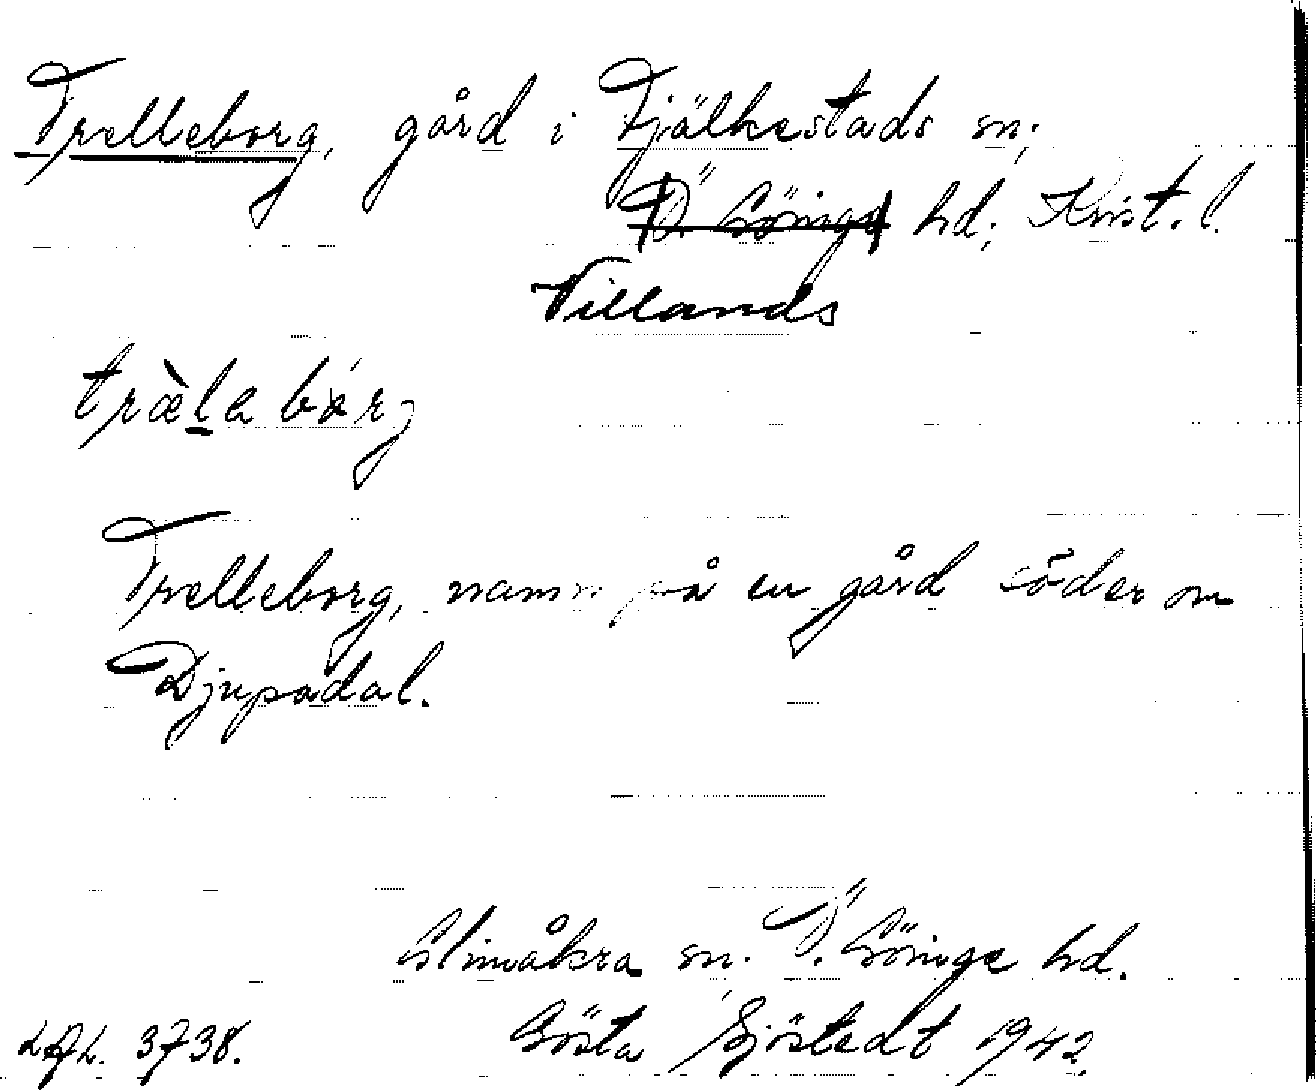 Trelleborg, gård i Fjälkestads sn;
Ö. Göinge hd; Krist. l.
Villands
Trelleborg, namn på en gård söder om
Djupadal.
Glimåkra sn. Ö. Göinge hd.
LAL. 3738. Gösta Sjöstedt 1942.